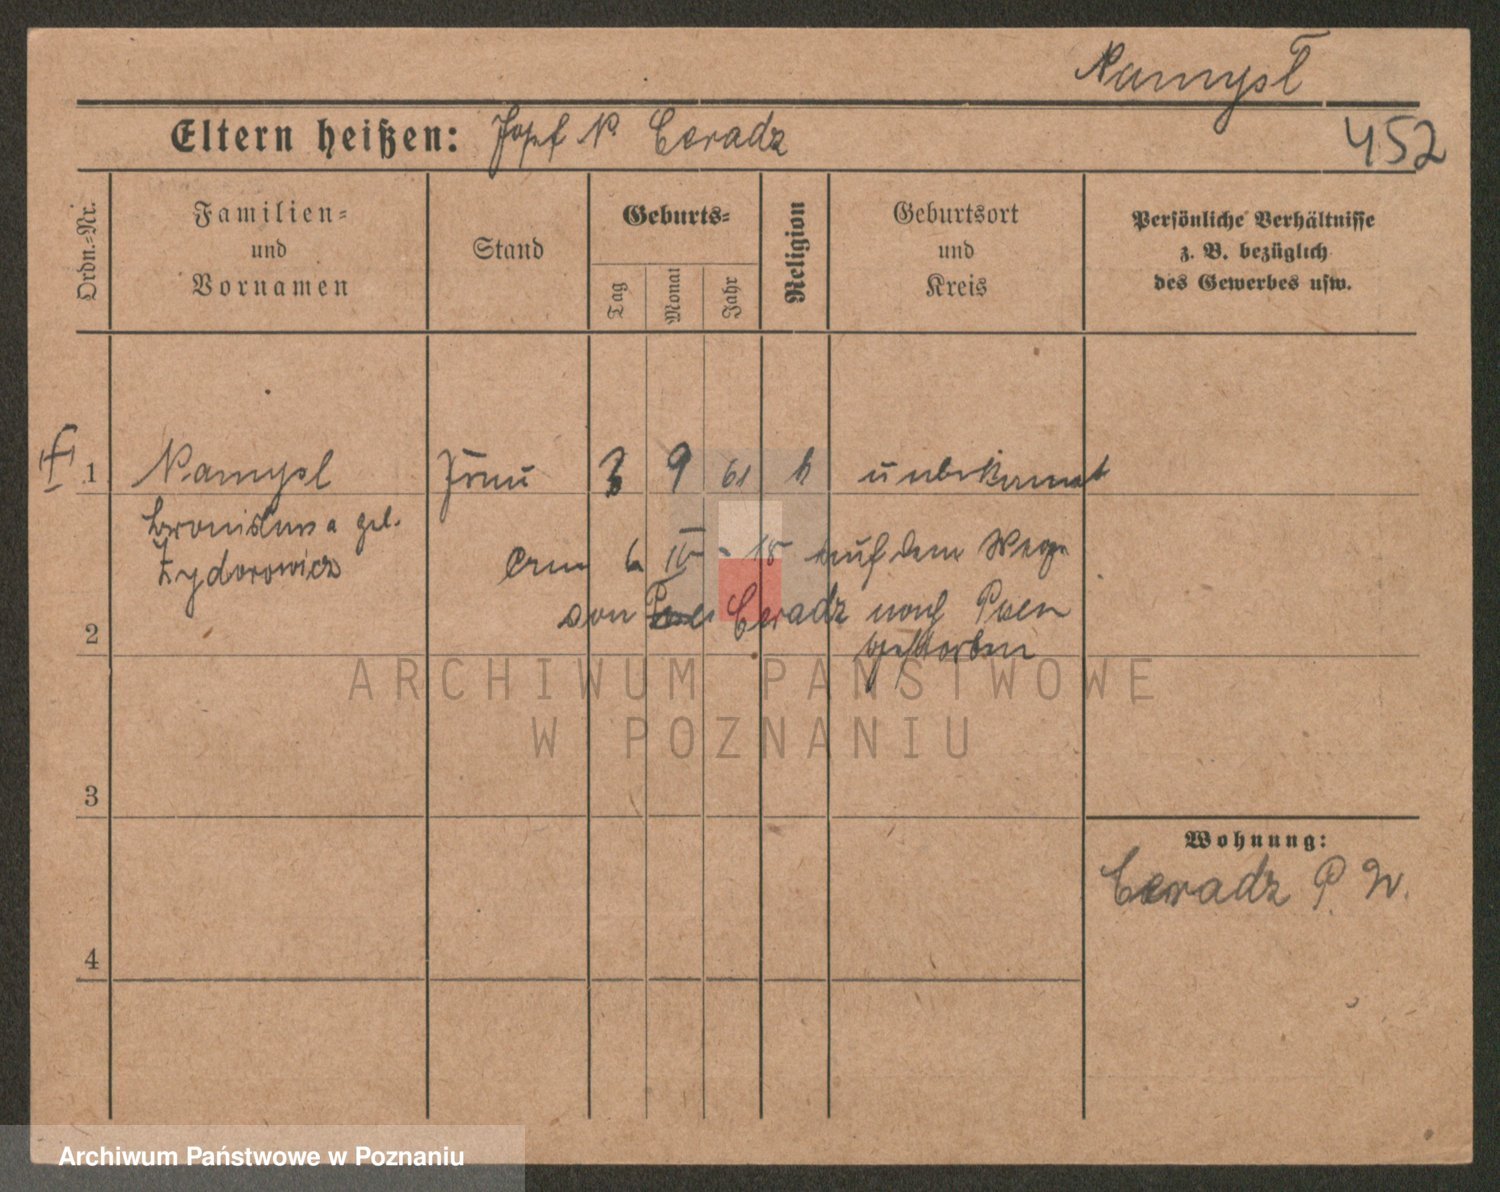 Namysł
Eltern heißen: Josef N Ceradz
452
Ordn.=Nr.
Familien=
und
Vornamen
Stand
Geburts=
Tag
Monat
Jahr
Religion
Geburtsort
und
Kreis
Persönliche Verhältnisse
z. B. bezüglich
des Gewerbes usw.
1 Namysl Frau 3 9 61 k unbekannt
Bronislawa geb.
Zydorowicz
am 6 IV 18 auf dem Wege
von Ceradz nach Posen
gestorben
2
3
4
Wohnung:
Ceradz P. W.
ARCHIWUM PAŃSTWOWE
W POZNANIU
Archiwum Państwowe w Poznaniu